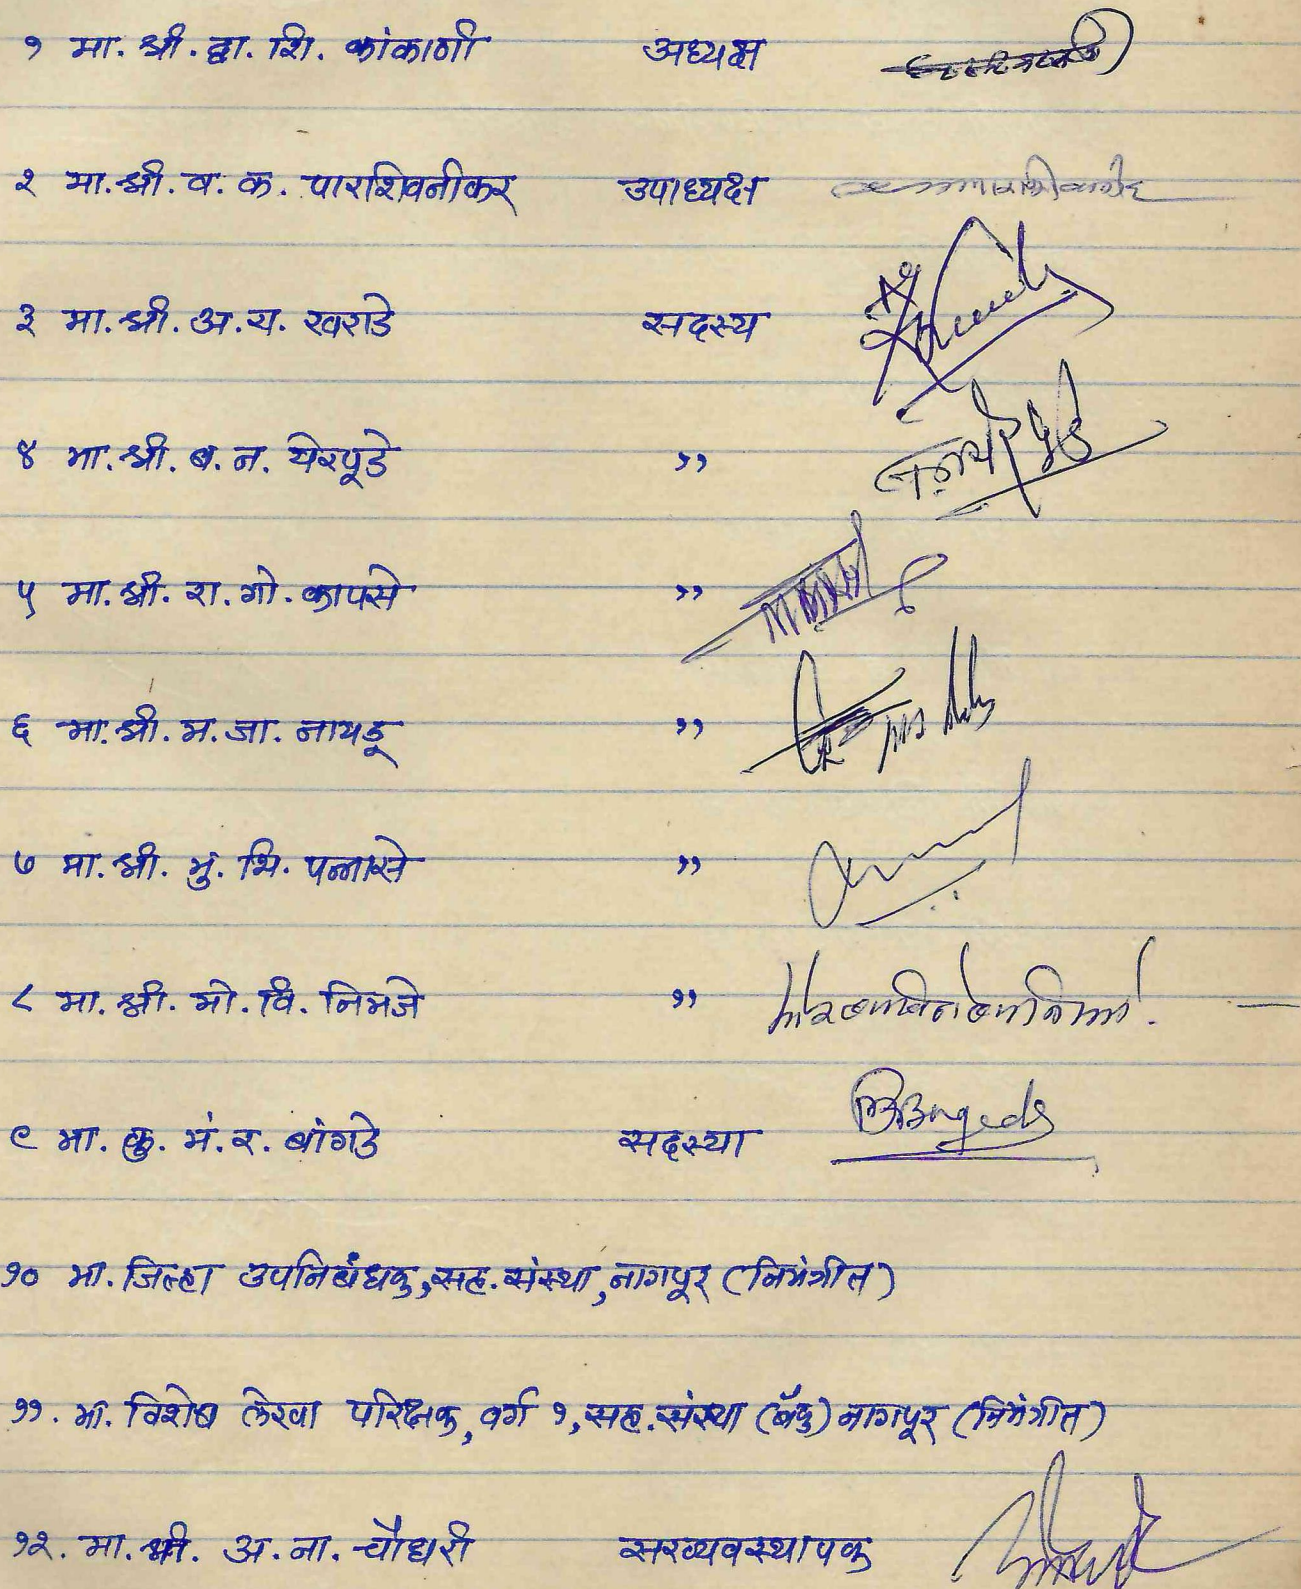 १ मा. श्री. द्वा. शि. कांकाणी अध्यक्ष
२ मा. श्री. व. क. पारशिवनीकर उपाध्यक्ष
३ मा. श्री. अ. य. खराडे सदस्य
४ मा. श्री. ब. न. येरपूडे ,,
५ मा. श्री. रा. गो. कापसे ,,
६ मा. श्री. म. जा. नायडू ,,
७ मा. श्री. मुं. भि. पन्नासे ,,
८ मा. श्री. मो. वि. निमजे ,,
९ मा. कु. मं. र. बांगडे सदस्या
१० मा. जिल्हा उपनिबंधक, सह. संस्था, नागपूर (निमंत्रीत)
११. मा. विशेष लेखा परिक्षक, वर्ग १, सह. संस्था (बँक) नागपूर (निमंत्रीत)
१२. मा. श्री. अ. ना. चौधरी सरव्यवस्थापक